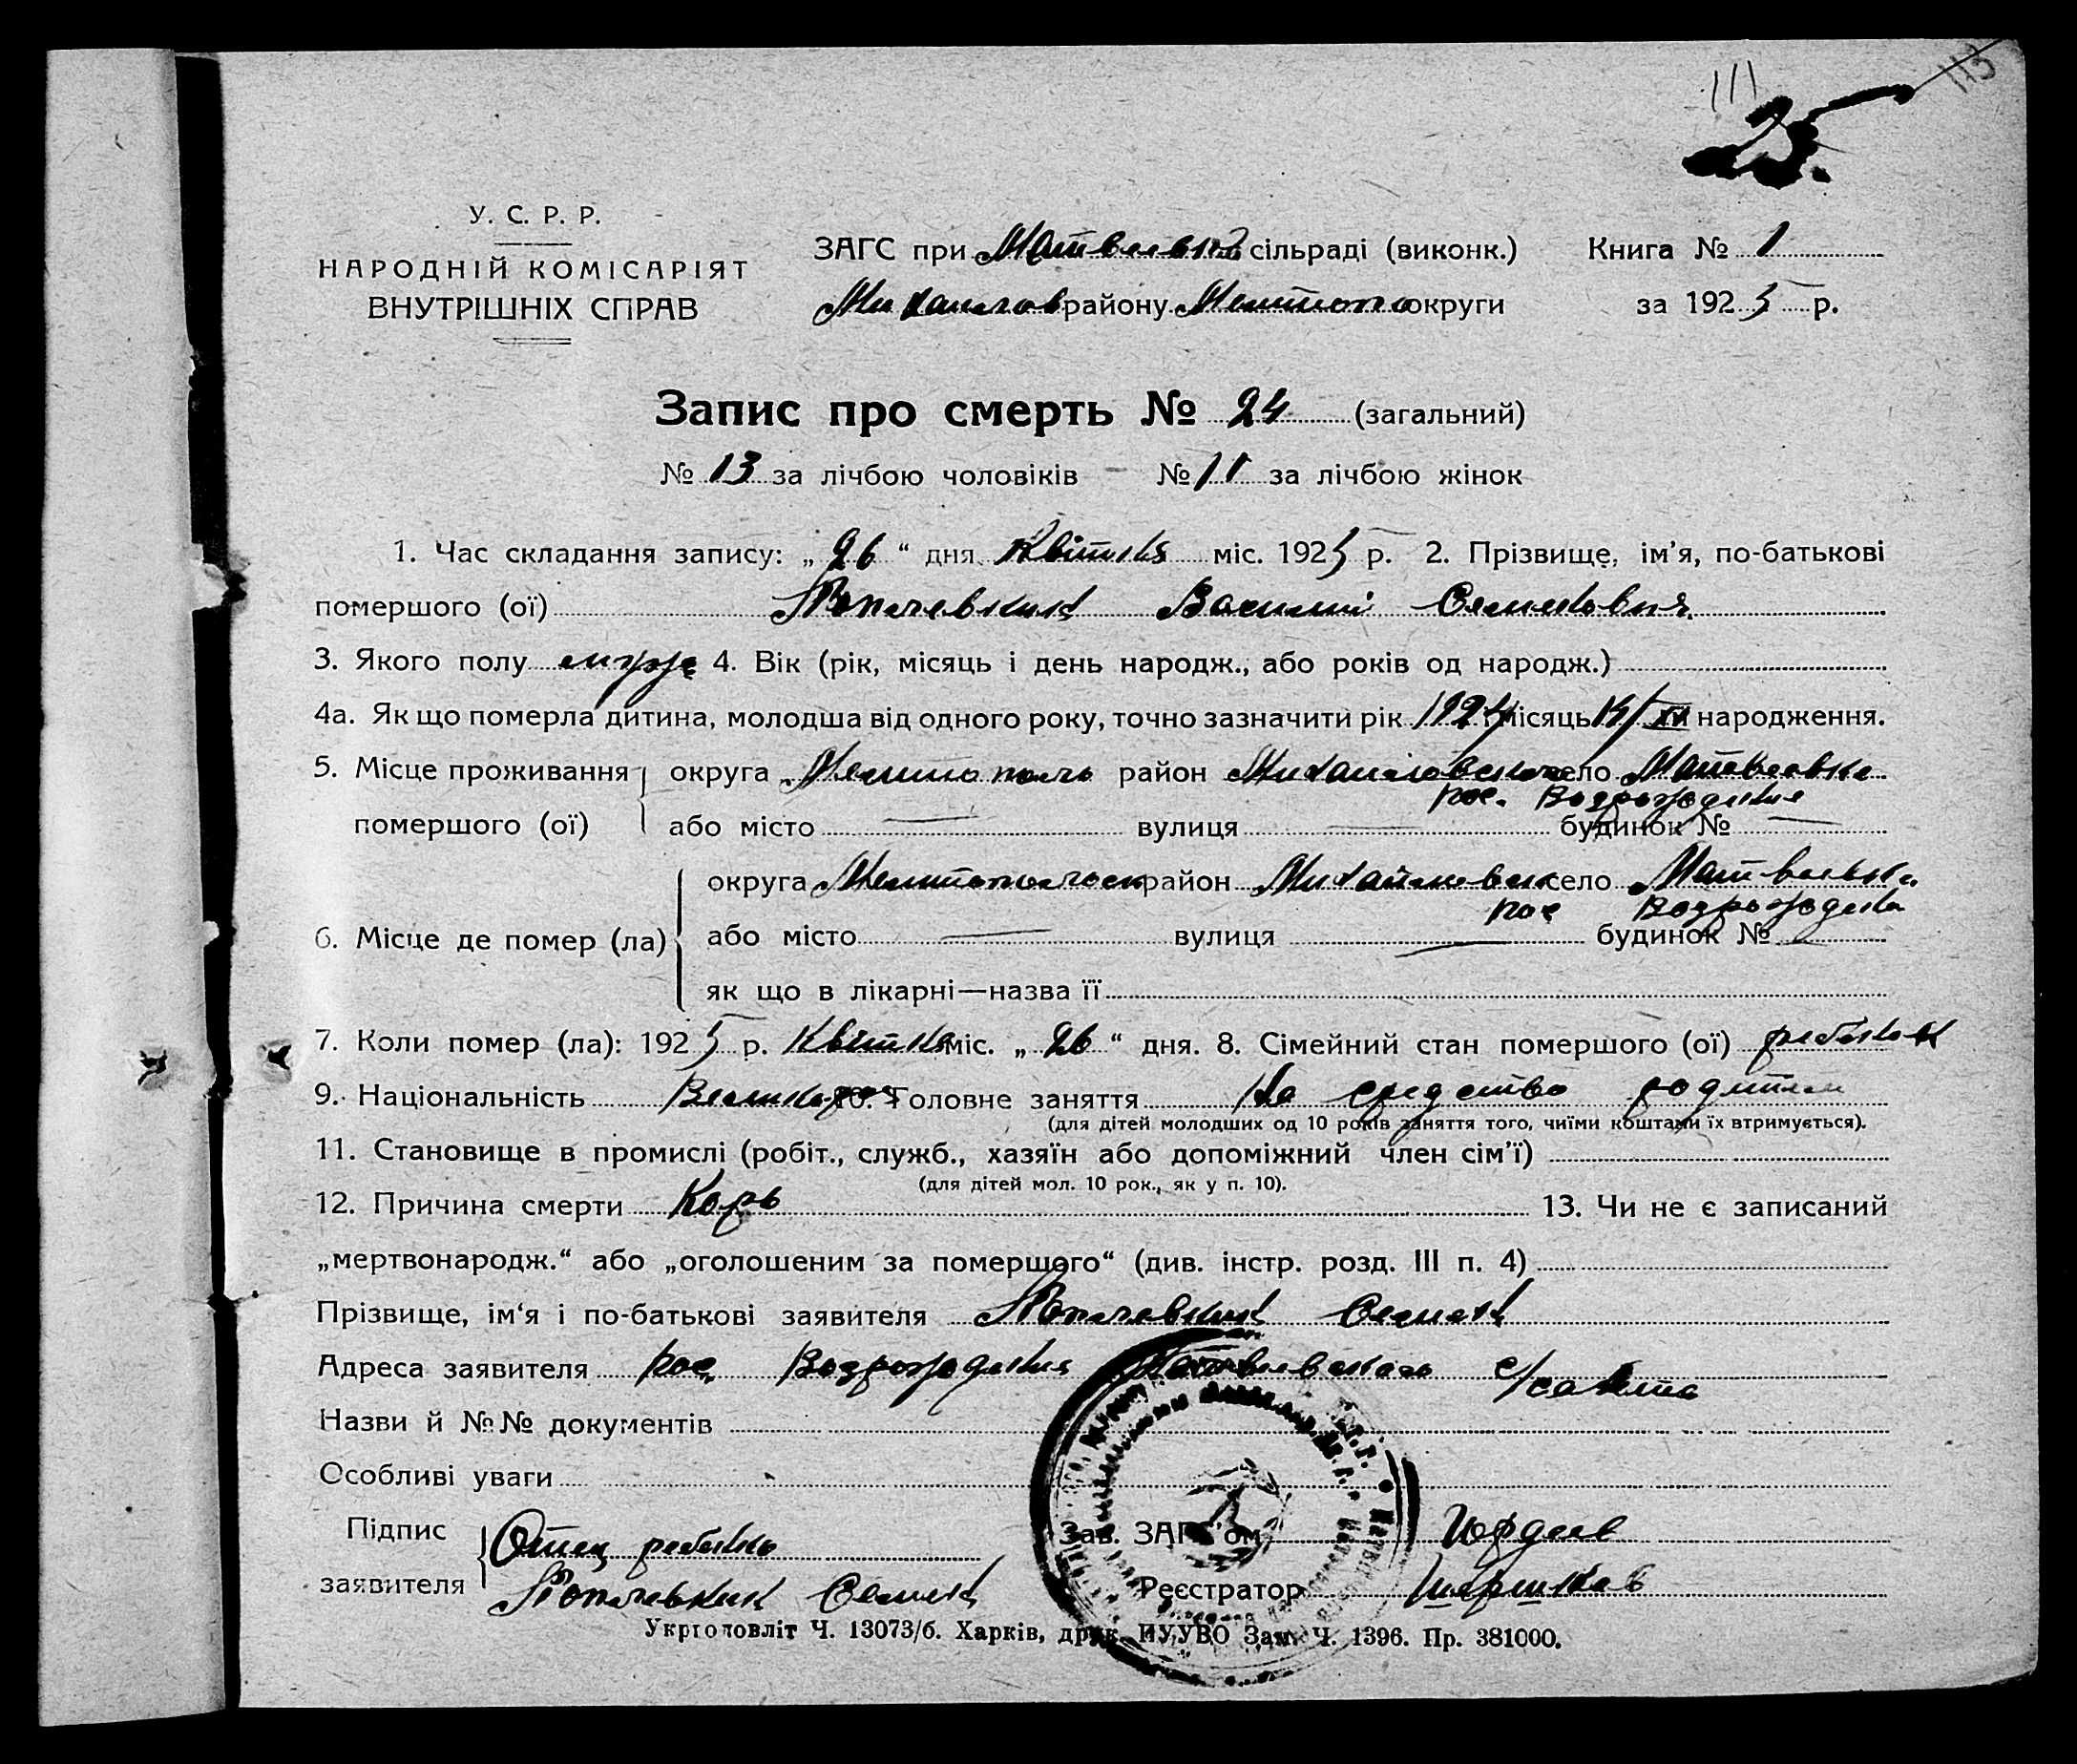 113
111
25.
У. С. Р. Р.
НАРОДНІЙ КОМІСАРІЯТ
ВНУТРІШНІХ СПРАВ
ЗАГС при Матвеевкой сільраді (виконк.) Книга № 1
Михайлов району Мелитопо округи за 1925 р.
Запис про смерть № 24 (загальний)
№ 13 за лічбою чоловіків № 11 за лічбою жінок
1. Час складання запису: „26“ дня Квітня міс. 1925 р. 2. Прізвище, ім’я, по-батькові
помершого (ої) Василий Семенович
3. Якого полу 4. Вік (рік, місяць і день народж., або років од народж.)
4а. Як що померла дитина, молодша від одного року, точно зазначити рік 1924 місяць народження.
5. Місце проживання округа Мелитополь район Михайловского село Матвеевка
пос. Возрождения
помершого (ої) або місто — вулиця — будинок № —
округа Мелитопольск район Михайловск село Матвеевка
пос Возрождения
6. Місце де помер (ла) або місто — вулиця — будинок № —
як що в лікарні—назва її
7. Коли помер (ла): 1925 р. Квітня міс. „26“ дня. 8. Сімейний стан помершого (ої) ребенок
9. Національність Великорос 10. Головне заняття На средство родители
(для дітей молодших од 10 років заняття того, чиїми коштами їх втримується).
11. Становище в промислі (робіт., служб., хазяїн або допоміжний член сім’ї)
(для дітей мол. 10 рок., як у п. 10).
12. Причина смерти Корь 13. Чи не є записаний
„мертвонародж.“ або „оголошеним за помершого“ (див. інстр. розд. III п. 4)
Прізвище, ім‘я і по-батькові заявителя Семен
Адреса заявителя пос. Возрождения Матвеевского с/совета
Назви й №№ документів
Особливі уваги
Підпис Отец ребенка Зав. ЗАГС’ом Гордеев
заявителя Семен Реєстратор
Укрголовліт Ч. 13073/б. Харків, друк. ПУУВО Зам. Ч. 1396. Пр. 381000.